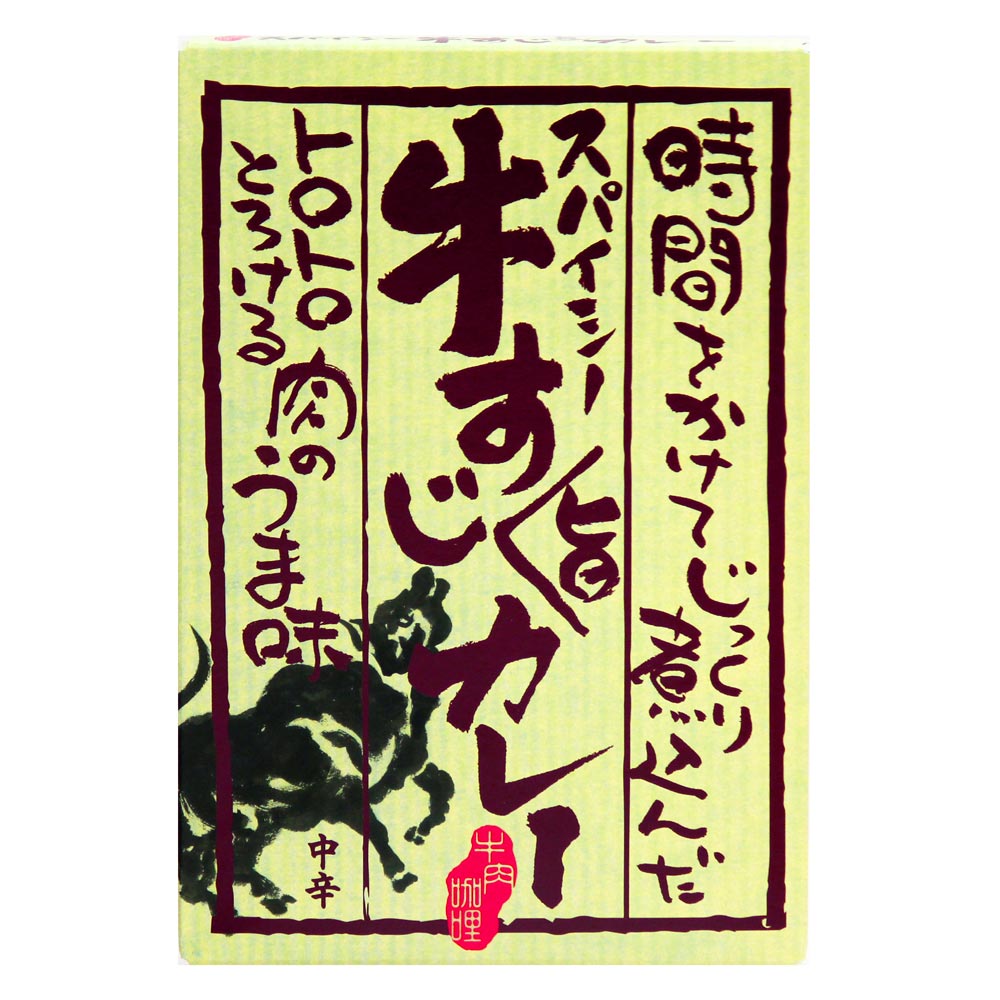 時間をかけてじっくり
煮込んだ
スパイシー
牛すじカレー
旨く
トロトロ
とろける
肉の
うま味
中辛
牛肉
咖哩